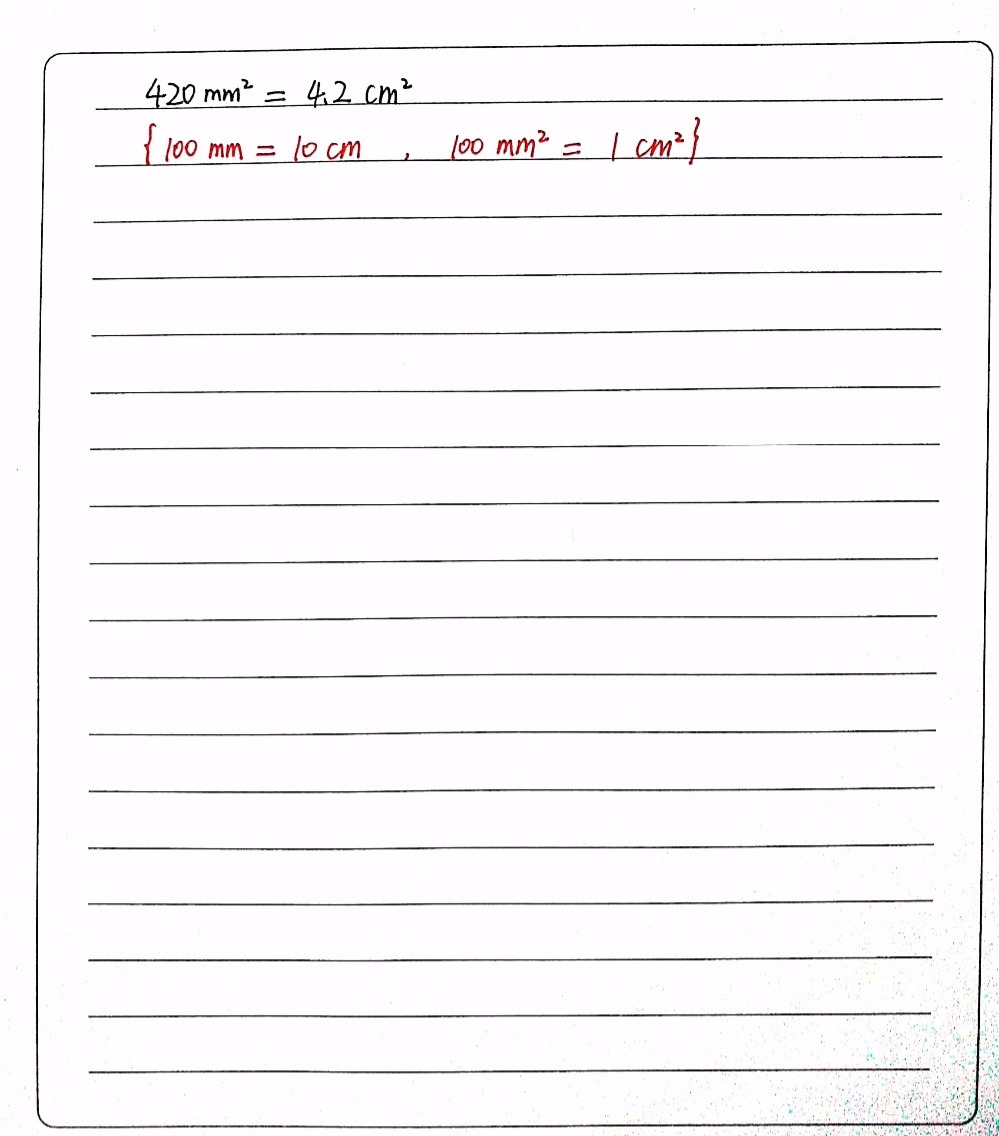 420 mm² = 4.2 cm²
{100 mm = 10 cm , 100 mm² = 1 cm²}